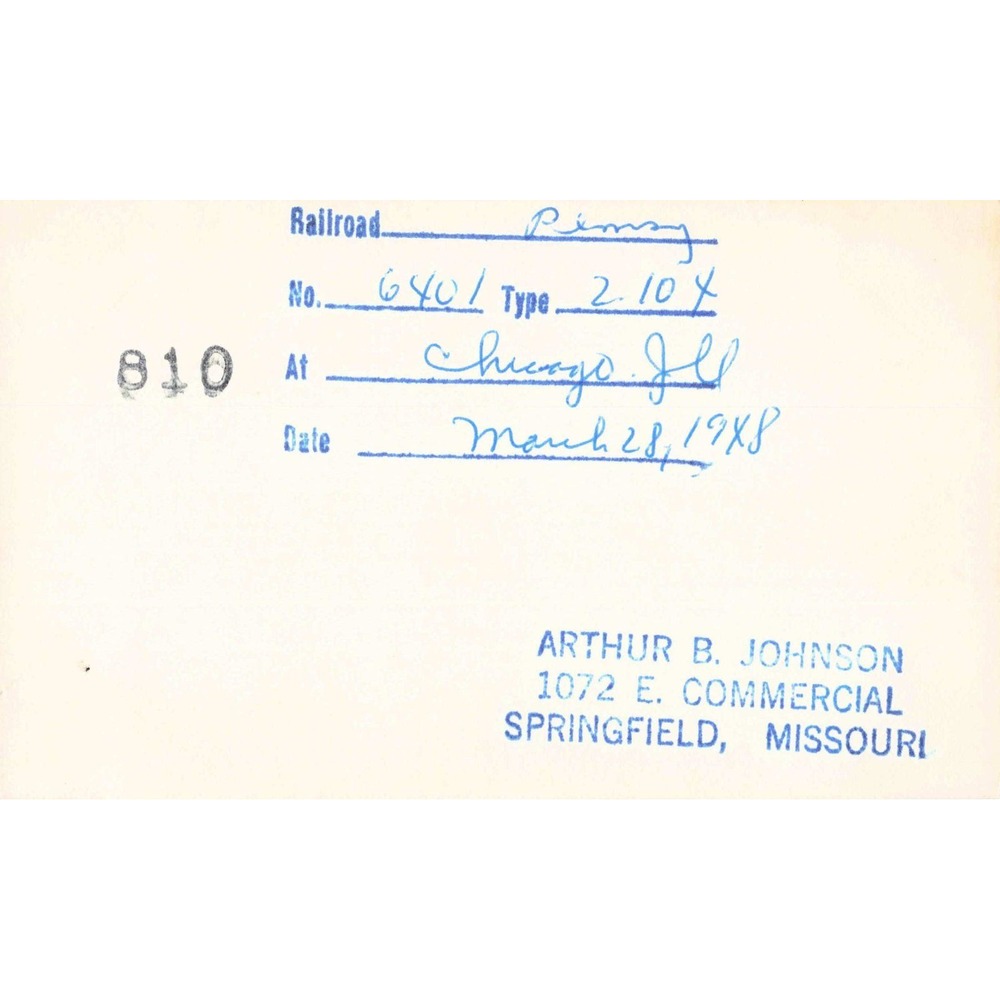 Railroad Pennsy
No. 6401 Type 2.10 4
At Chicago. Ill
810
Date March 28, 1948
ARTHUR B. JOHNSON
1072 E. COMMERCIAL
SPRINGFIELD, MISSOURI